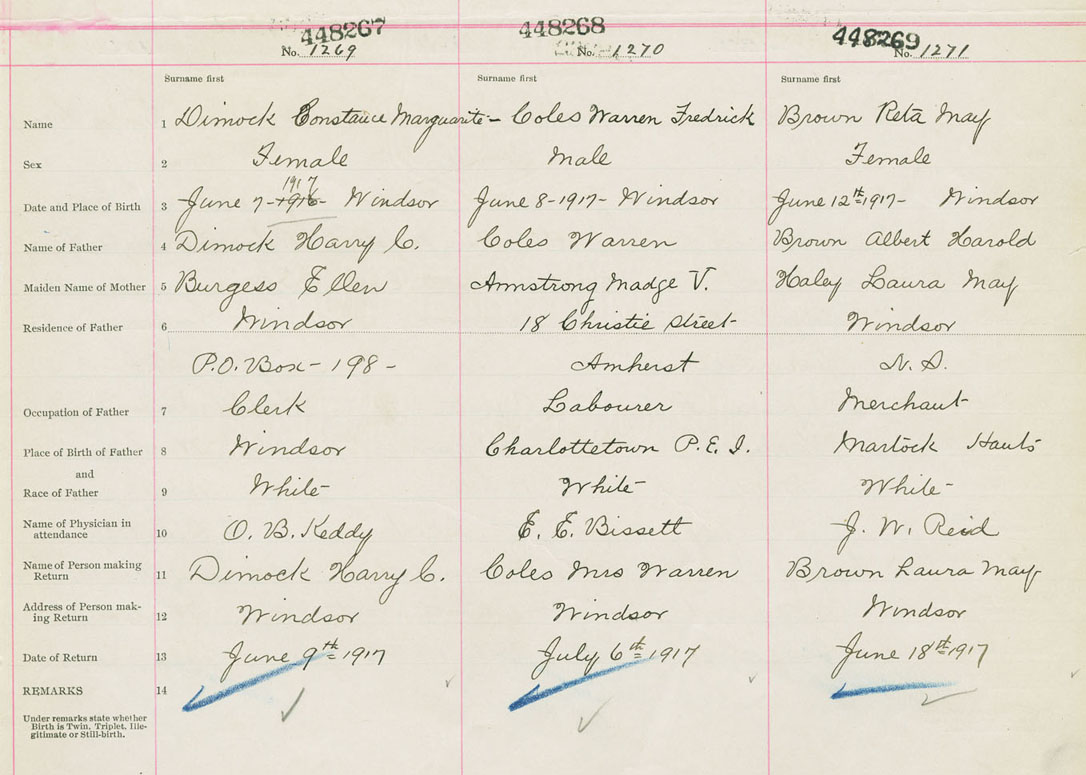 448267 448268 448269
No. 1269 No. 1270 No. 1271
Surname first Surname first Surname first
Name 1 Dimock Constance Marguarite - Coles Warren Fredrick Brown Reta May
Sex 2 Female Male Female
Date and Place of Birth 3 June 7 - 1916 - 1917 Windsor June 8 - 1917 - Windsor June 12th 1917 - Windsor
Name of Father 4 Dimock Harry C. Coles Warren Brown Albert Harold
Maiden Name of Mother 5 Burgess Ellen Armstrong Madge V. Haley Laura May
Residence of Father 6 Windsor 18 Christie Street Windsor
P.O. Box - 198 - Amherst N. S.
Occupation of Father 7 Clerk Labourer Merchant
Place of Birth of Father 8 Windsor Charlottetown P. E. I. Martock Hants
and
Race of Father 9 White White White
Name of Physician in attendance 10 O. B. Keddy E. E. Bissett J. W. Reid
Name of Person making Return 11 Dimock Harry C. Coles Mrs Warren Brown Laura May
Address of Person making Return 12 Windsor Windsor Windsor
Date of Return 13 June 9th 1917 July 6th 1917 June 18th 1917
REMARKS 14
Under remarks state whether
Birth is Twin, Triplet, Ille-
gitimate or Still-birth.